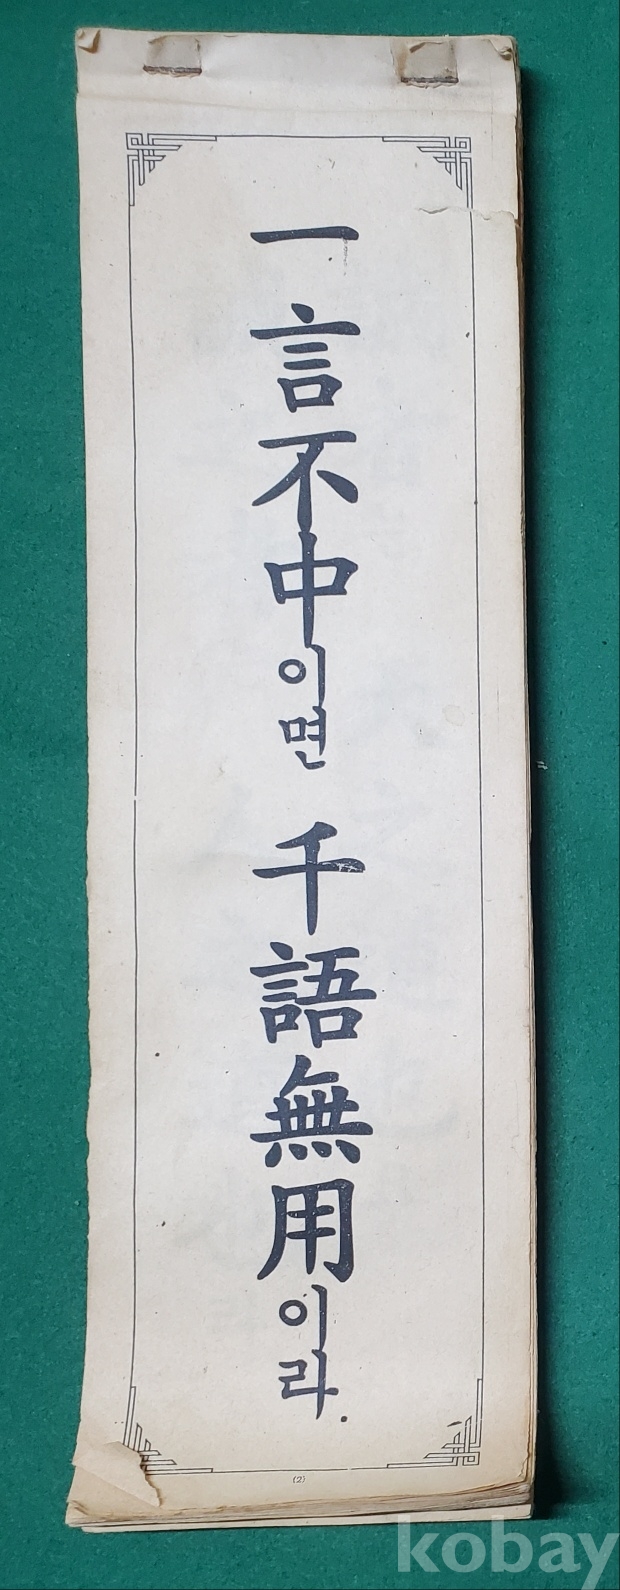 一言不中이면 千語無用이라.
(2)
kobay